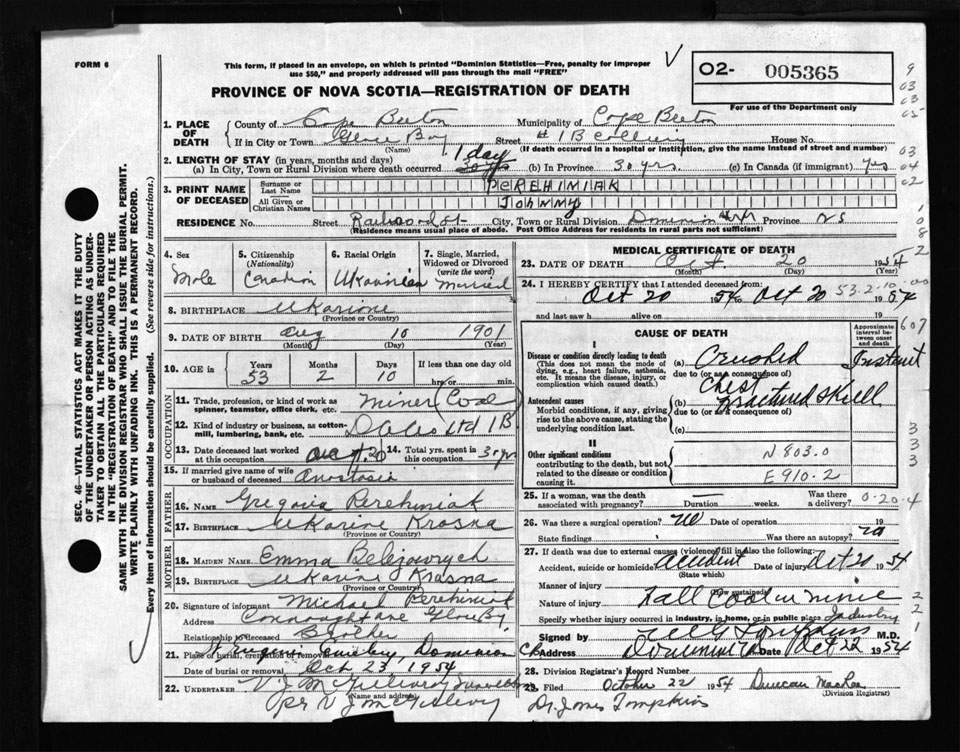 FORM 6
This form, if placed in an envelope, on which is printed "Dominion Statistics—Free, penalty for improper
use $50," and properly addressed will pass through the mail "FREE"
02- 005365
For use of the Department only
PROVINCE OF NOVA SCOTIA—REGISTRATION OF DEATH
1. PLACE OF DEATH
County of Cape Breton Municipality of Cape Breton
If in City or Town Glace Bay Street #1B Colliery House No.
(Name) (If death occurred in a hospital or institution, give the name instead of street and number)
2. LENGTH OF STAY (in years, months and days)
(a) In City, Town or Rural Division where death occurred 1 day (b) In Province 30 yrs (c) In Canada (if immigrant) yes
3. PRINT NAME OF DECEASED
Surname or Last Name PEREHIMIAK
All Given or Christian Names JOHNNY
RESIDENCE No. Street Railroad St. City, Town or Rural Division Dominion Province NS
(Residence means usual place of abode. Post Office Address for residents in rural parts not sufficient)
4. Sex Male
5. Citizenship (Nationality) Canadian
6. Racial Origin Ukrainian
7. Single, Married, Widowed or Divorced (write the word) Married
8. BIRTHPLACE Ukarine
(Province or Country)
9. DATE OF BIRTH Aug 10 1901
(Month) (Day) (Year)
10. AGE in Years 53 Months 2 Days 10 If less than one day old hrs. or min.
OCCUPATION
11. Trade, profession, or kind of work as spinner, teamster, office clerk, etc. Miner (Coal
12. Kind of industry or business, as cotton-mill, lumbering, bank, etc. Ltd 1B
13. Date deceased last worked at this occupation Oct 20 14. Total yrs. spent in this occupation 30 yrs
15. If married give name of wife or husband of deceased Anastasia
FATHER
16. Name Gregoria Perehiniak
17. Birthplace Ukarine Krasna
(Province or Country)
MOTHER
18. Maiden Name: Emma
19. Birthplace Ukarine Krasna
(Province or Country)
20. Signature of informant Michael Perehiniak
Address Connaught Ave Glace Bay
Relationship to deceased Brother
21. Place of burial, cremation or removal Dominion CB
Date of burial or removal Oct 23, 1954
22. UNDERTAKER V J McGillivray
(Name and address)
Per V J McGillivray
MEDICAL CERTIFICATE OF DEATH
23. DATE OF DEATH Oct. 20 1954
(Month) (Day) (Year)
24. I HEREBY CERTIFY that I attended deceased from:
Oct 20 1954 to Oct 20 1954
53-2-10-00
and last saw h alive on 19
CAUSE OF DEATH
Approximate interval between onset and death
I
Disease or condition directly leading to death
(This does not mean the mode of dying, e.g., heart failure, asthenia, etc. It means the disease, injury, or complication which caused death.)
(a) Crushed Instant
due to (or as a consequence of)
Chest
Antecedent causes
Morbid conditions, if any, giving rise to the above cause, stating the underlying condition last.
(b) Fractured Skull
due to (or as a consequence of)
(c)
II
Other significant conditions contributing to the death, but not related to the disease or condition causing it.
N 803.0
E 910-2
25. If a woman, was the death associated with pregnancy? Duration weeks. Was there a delivery?
0-20-4
26. Was there a surgical operation? no Date of operation 19
State findings Was there an autopsy? no
27. If death was due to external causes (violence) fill in also the following:
Accident, suicide or homicide? Accident Date of injury Oct 20 1954
(State which)
Manner of injury
(How sustained)
Nature of injury Fall Coal in mine
Specify whether injury occurred in industry, in home, or in public place Industry
Signed by M.D.
Address Dominion Date Oct 22 1954
28. Division Registrar's Record Number
29. Filed October 22 1954 Duncan MacRae
(Division Registrar)
Dr. James Tompkins
SEC. 46—VITAL STATISTICS ACT MAKES IT THE DUTY
OF THE UNDERTAKER OR PERSON ACTING AS UNDER-
TAKER TO OBTAIN ALL THE PARTICULARS REQUIRED
IN THE "REGISTRATION OF DEATH" AND TO FILE THE
SAME WITH THE DIVISION REGISTRAR WHO SHALL ISSUE THE BURIAL PERMIT.
WRITE PLAINLY WITH UNFADING INK. THIS IS A PERMANENT RECORD.
Every item of information should be carefully supplied. (See reverse side for instructions.)
9
03
03
05
03
04
02
1
0
8
2
607
3
3
3
2
2
1